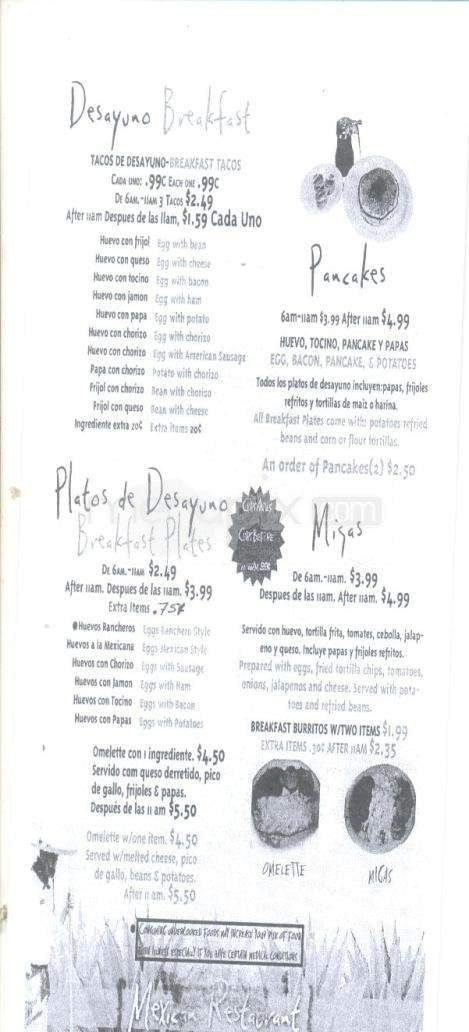 Desayuno Breakfast
TACOS DE DESAYUNO-BREAKFAST TACOS
CADA UNO: .99¢ EACH ONE .99¢
DE 6AM.-11AM 3 TACOS $2.49
After 11am Despues de las 11am, $1.59 Cada Uno
Huevo con frijol Egg with bean
Huevo con queso Egg with cheese
Huevo con tocino Egg with bacon
Huevo con jamon Egg with ham
Huevo con papa Egg with potato
Huevo con chorizo Egg with chorizo
Huevo con chorizo Egg with American Sausage
Papa con chorizo Potato with chorizo
Frijol con chorizo Bean with chorizo
Frijol con queso Bean with cheese
Ingrediente extra 20¢ Extra items 20¢
Pancakes
6am-11am $3.99 After 11am $4.99
HUEVO, TOCINO, PANCAKE Y PAPAS
EGG, BACON, PANCAKE, & POTATOES
Todos los platos de desayuno incluyen:papas, frijoles
refritos y tortillas de maiz o harina.
All Breakfast Plates come with: potatoes refried
beans and corn or flour tortillas.
An order of Pancakes(2) $2.50
Platos de Desayuno
Breakfast Plates
DE 6AM.-11AM $2.49
After 11am. Despues de las 11am. $3.99
Extra Items .75¢
Huevos Rancheros Eggs Ranchero Style
Huevos a la Mexicana Eggs Mexican Style
Huevos con Chorizo Eggs with Sausage
Huevos con Jamon Eggs with Ham
Huevos con Tocino Eggs with Bacon
Huevos con Papas Eggs with Potatoes
Omelette con 1 ingrediente. $4.50
Servido com queso derretido, pico
de gallo, frijoles & papas.
Después de las 11 am $5.50
Omelette w/one item. $4.50
Served w/melted cheese, pico
de gallo, beans & potatoes.
After 11 am. $5.50
Migas
De 6am.-11am. $3.99
Despues de las 11am. After 11am. $4.99
Servido con huevo, tortilla frita, tomates, cebolla, jalap-
eno y queso. Incluye papas y frijoles refritos.
Prepared with eggs, fried tortilla chips, tomatoes,
onions, jalapenos and cheese. Served with pota-
toes and refried beans.
BREAKFAST BURRITOS W/TWO ITEMS $1.99
EXTRA ITEMS .30¢ AFTER 11AM $2.35
OMELETTE
MIGAS
CONSUMING UNDERCOOKED FOODS MAY INCREASE YOUR RISK OF FOOD
BORN ILLNESS ESPECIALLY IF YOU HAVE CERTAIN MEDICAL CONDITIONS
Mexican Restaurant